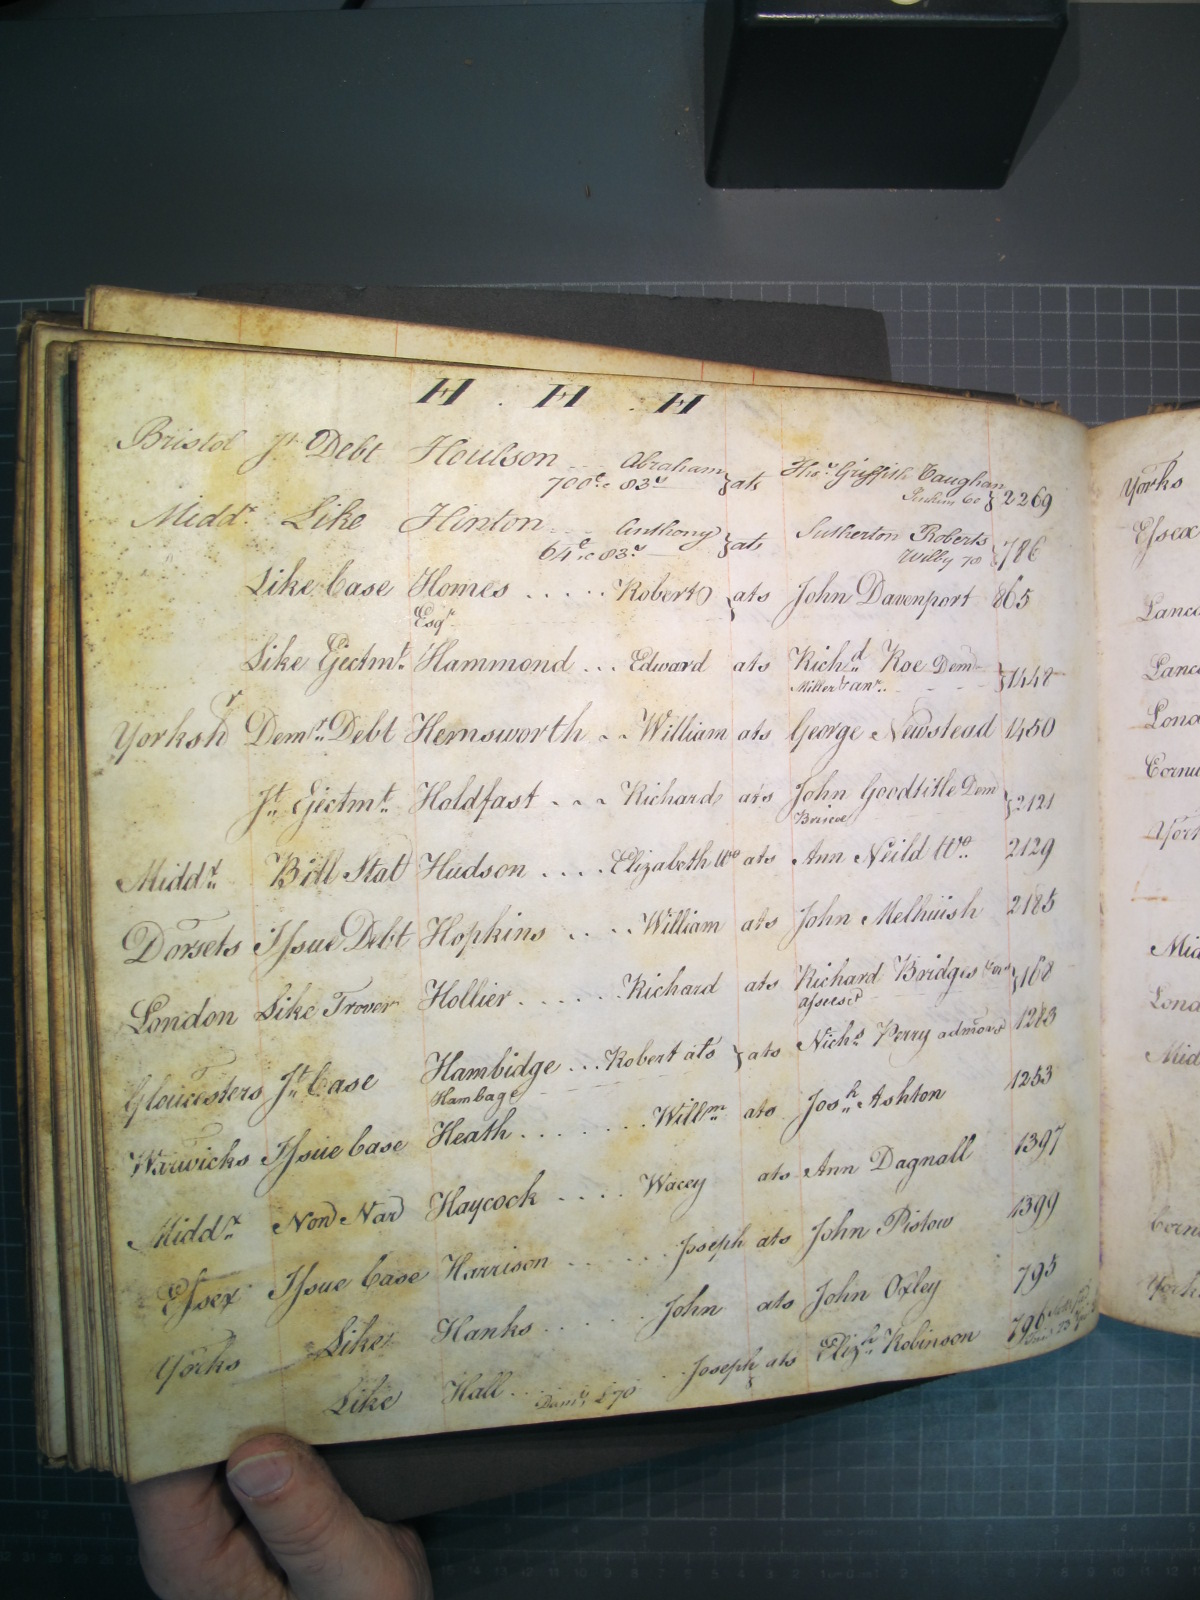 H . H . H
Bristol Jt Debt Houlson Abraham } ats Thos Griffith Vaughan } 2269
700 c 83s
Middx Like Hinton Anthony } ats Sutherton Roberts } 786
64 c 83s Wilby 70
Like Case Homes ..... Robert } ats John Davenport 865
Esqr
Like Ejectmt Hammond ... Edward ats Richd Roe Dem } 1448
Miller & anr
Yorkshr Demr Debt Hemsworth .. William ats George Newstead 1450
Jt Ejectmt Holdfast ... Richard ats John Goodtitle Dem } 2121
Briscoe
Middx Bill Stat Hudson .... Elizabeth Wo ats Ann Neild Wo 2129
Dorsets Issue Debt Hopkins .... William ats John Melhuish 2185
London Like Trover Hollier ..... Richard ats Richard Bridges } 168
assees
Gloucesters Jt Case Hambidge ... Robert ats } ats Nichs Perry admors 1283
Hambage
Warwicks Issue Case Heath ....... Willm ats Josh Ashton 1253
Middx Non Nar Haycock .... Wacey ats Ann Dagnall 1397
Essex Issue Case Harrison ..... Joseph ats John Pistow 1399
Yorks Like Hanks ..... John ats John Oxley 795
Like Hall ... Joseph ats Elizh Robinson 796
Dams £70
Yorks
Essex
Lanc
Lanc
Lond
Cornw
York
Mid
Lond
Mid
Corn
York